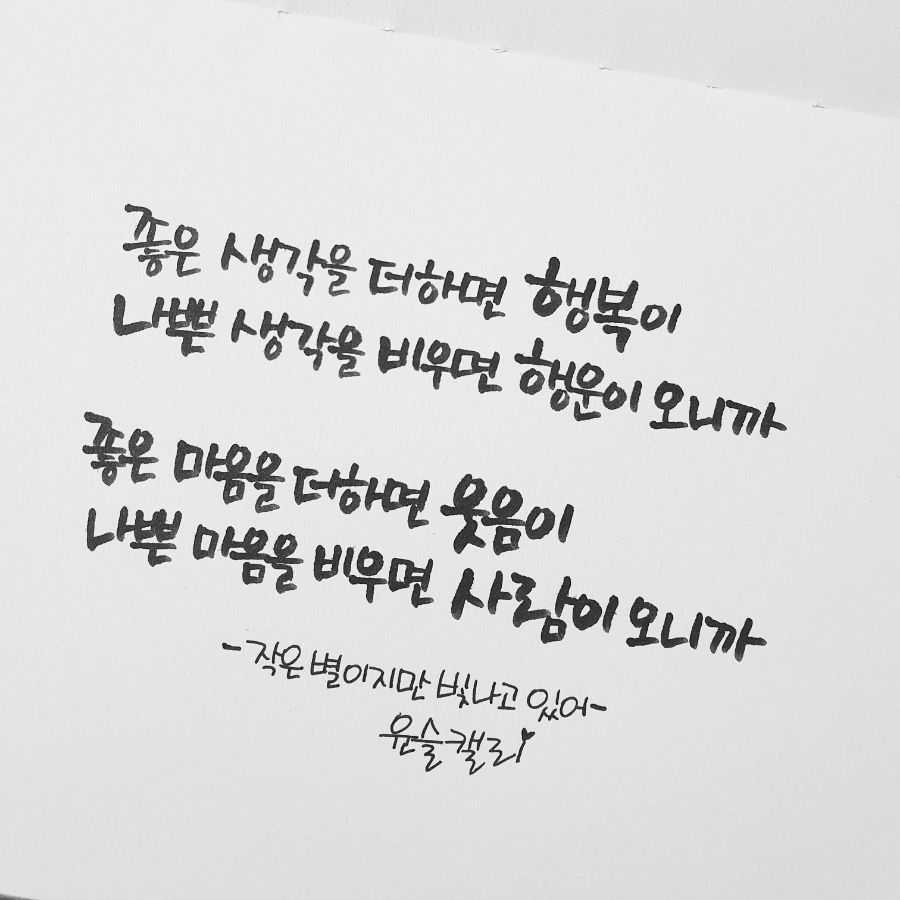 좋은 생각을 더하면 행복이
나쁜 생각을 비우면 행운이 오니까
좋은 마음을 더하면 웃음이
나쁜 마음을 비우면 사람이 오니까
-작은 별이지만 빛나고 있어-
윤슬캘리